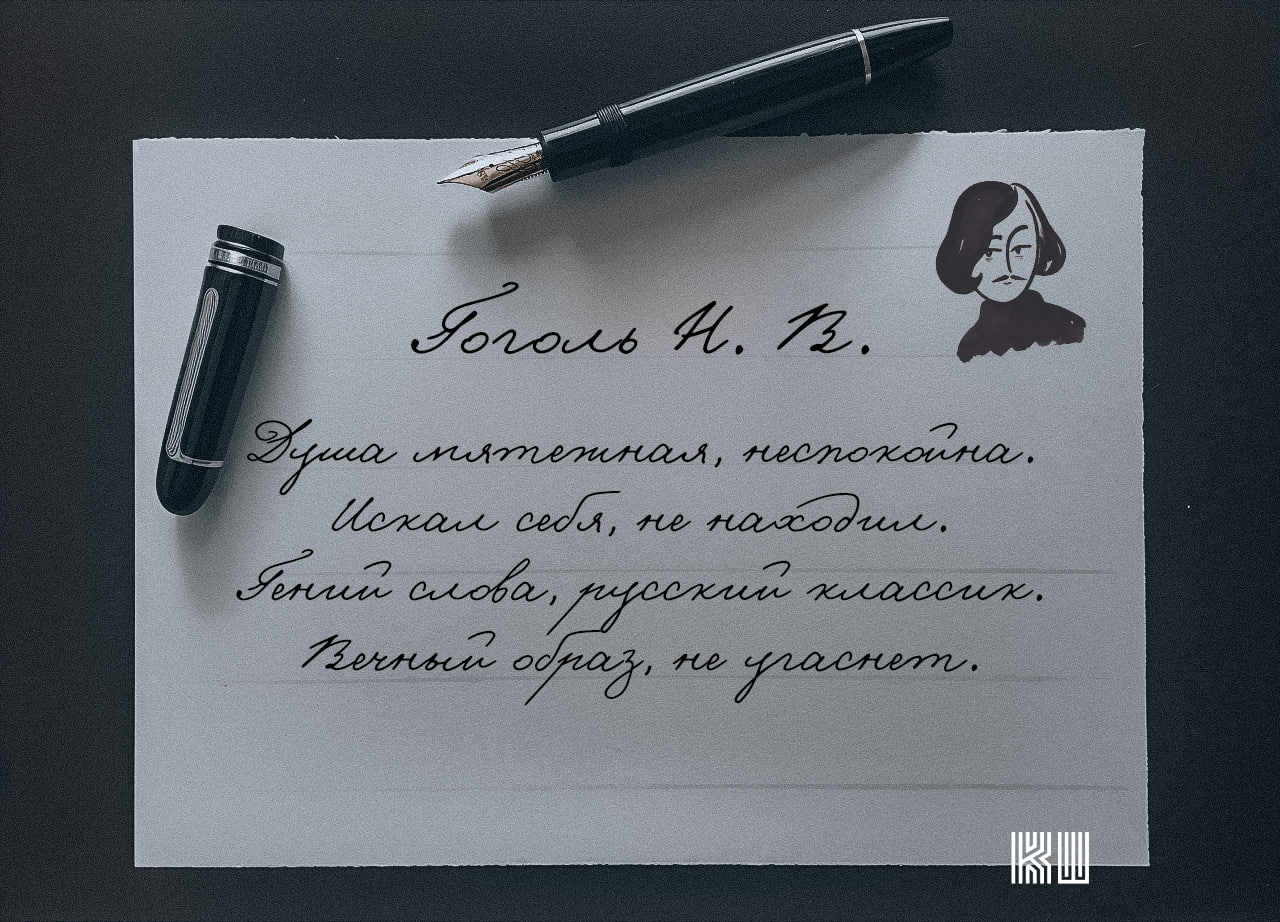 Гоголь Н. В.
Душа мятежная, неспокойна.
Искал себя, не находил.
Гений слова, русский классик.
Вечный образ, не угаснет.
КШ